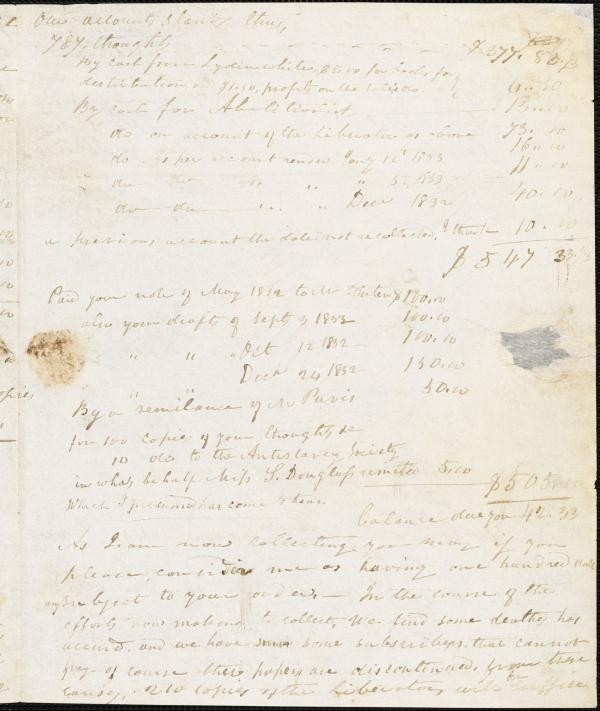 Our account stands thus,
787, thoughts $277. 83 1/3
By cash from Lydia White, $5.00 for books, for
distribution, and $1.50, profits on the sales do 6.50
By cash for Abolitionist 13.00
do on account of the Liberator as above 73.00
do as per account render Jany 12th 1833 16.00
do do " " " 5. 1833 11.00
do do " " Decr 1832 40.00
a previous account the date not recollected, I think 10.00
$547 33 1/3
Paid your note of May 1832 to Mr $100.00
also your drafts of Sept 3 1832 100.00
" " " Oct 12 1832 100.00
" " Decr 24 1832 150.00
By a remittance of Mr Purvis 50.00
for 100 copies of your thoughts &c
10 do to the Antislavery Society
in whos behalf Miss S. Douglass remitted 5.00 $505
Which I presume has come to hand.
balance due you 42.33
As I am now collecting you may if you
please, consider me as having one hundred
subject to your order,— In the course of the
efforts now making to collect, We find some deaths has
accurd, and we have some subscribers, that cannot
pay of course their papers are discontinued, from these
causes, 210 copies of the Liberator, will be suffice
copies